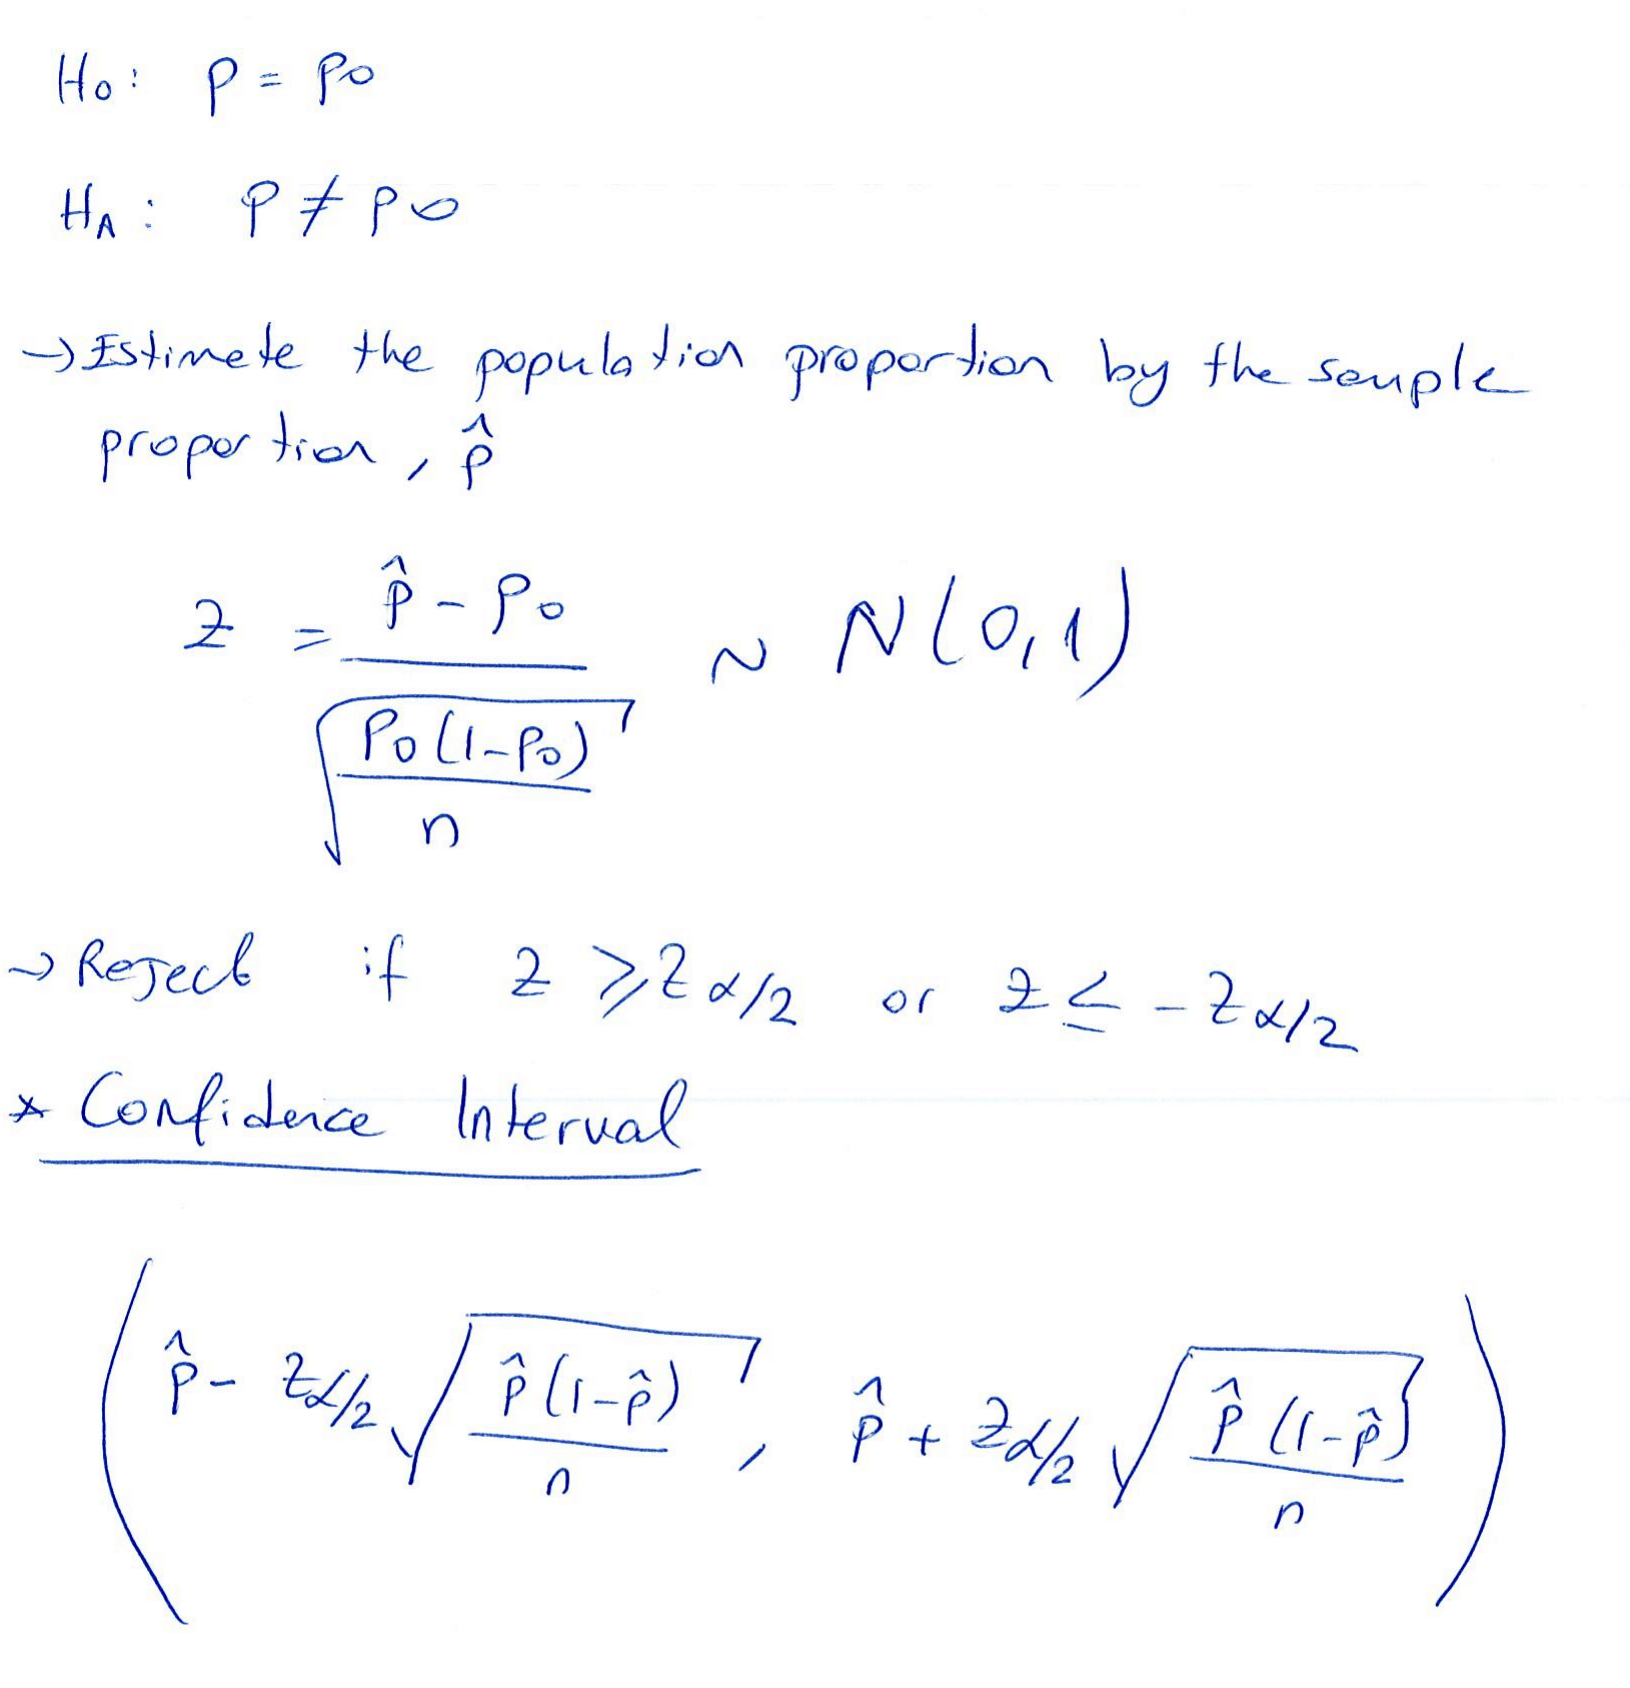 H₀: p = p₀
H_A: p ≠ p₀
→ Estimate the population proportion by the sample
proportion, p̂
z = (p̂ - p₀) / √(p₀(1-p₀)/n) ~ N(0,1)
→ Reject if z ≥ z_α/2 or z ≤ -z_α/2
* Confidence Interval
(p̂ - z_α/2 √(p̂(1-p̂)/n), p̂ + z_α/2 √(p̂(1-p̂)/n))